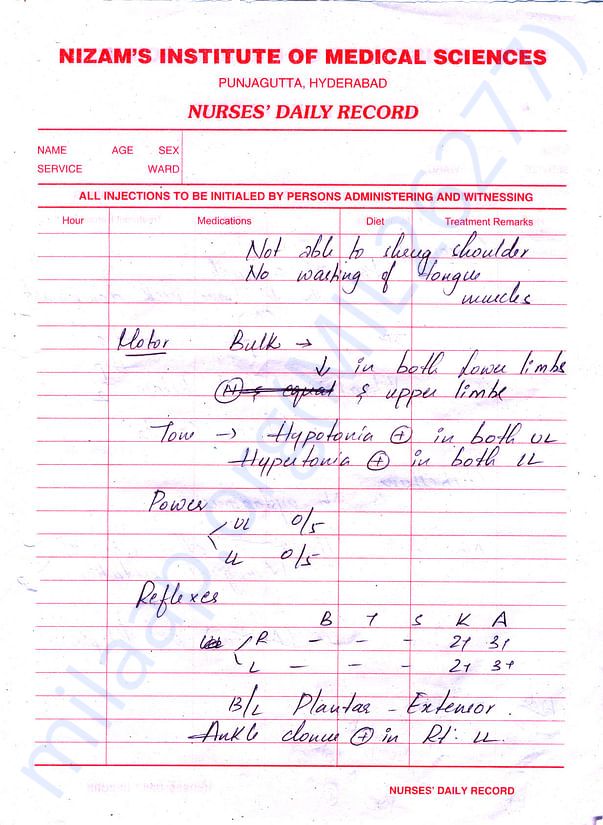 NIZAM'S INSTITUTE OF MEDICAL SCIENCES
PUNJAGUTTA, HYDERABAD
NURSES' DAILY RECORD
NAME AGE SEX
SERVICE WARD
ALL INJECTIONS TO BE INITIALED BY PERSONS ADMINISTERING AND WITNESSING
Hour Medications Diet Treatment Remarks
Not able to shrug shoulder
No wasting of tongue
muscles
Motor Bulk →
↓ in both lower limbs
& upper limbs
Tone → Hypotonia ⊕ in both UL
Hypertonia ⊕ in both LL
Power
UL 0/5
LL 0/5
Reflexes
B T S K A
R – – – 2+ 3+
L – – – 2+ 3+
B/L Plantar – Extensor.
Ankle clonus ⊕ in Rt. LL.
NURSES' DAILY RECORD